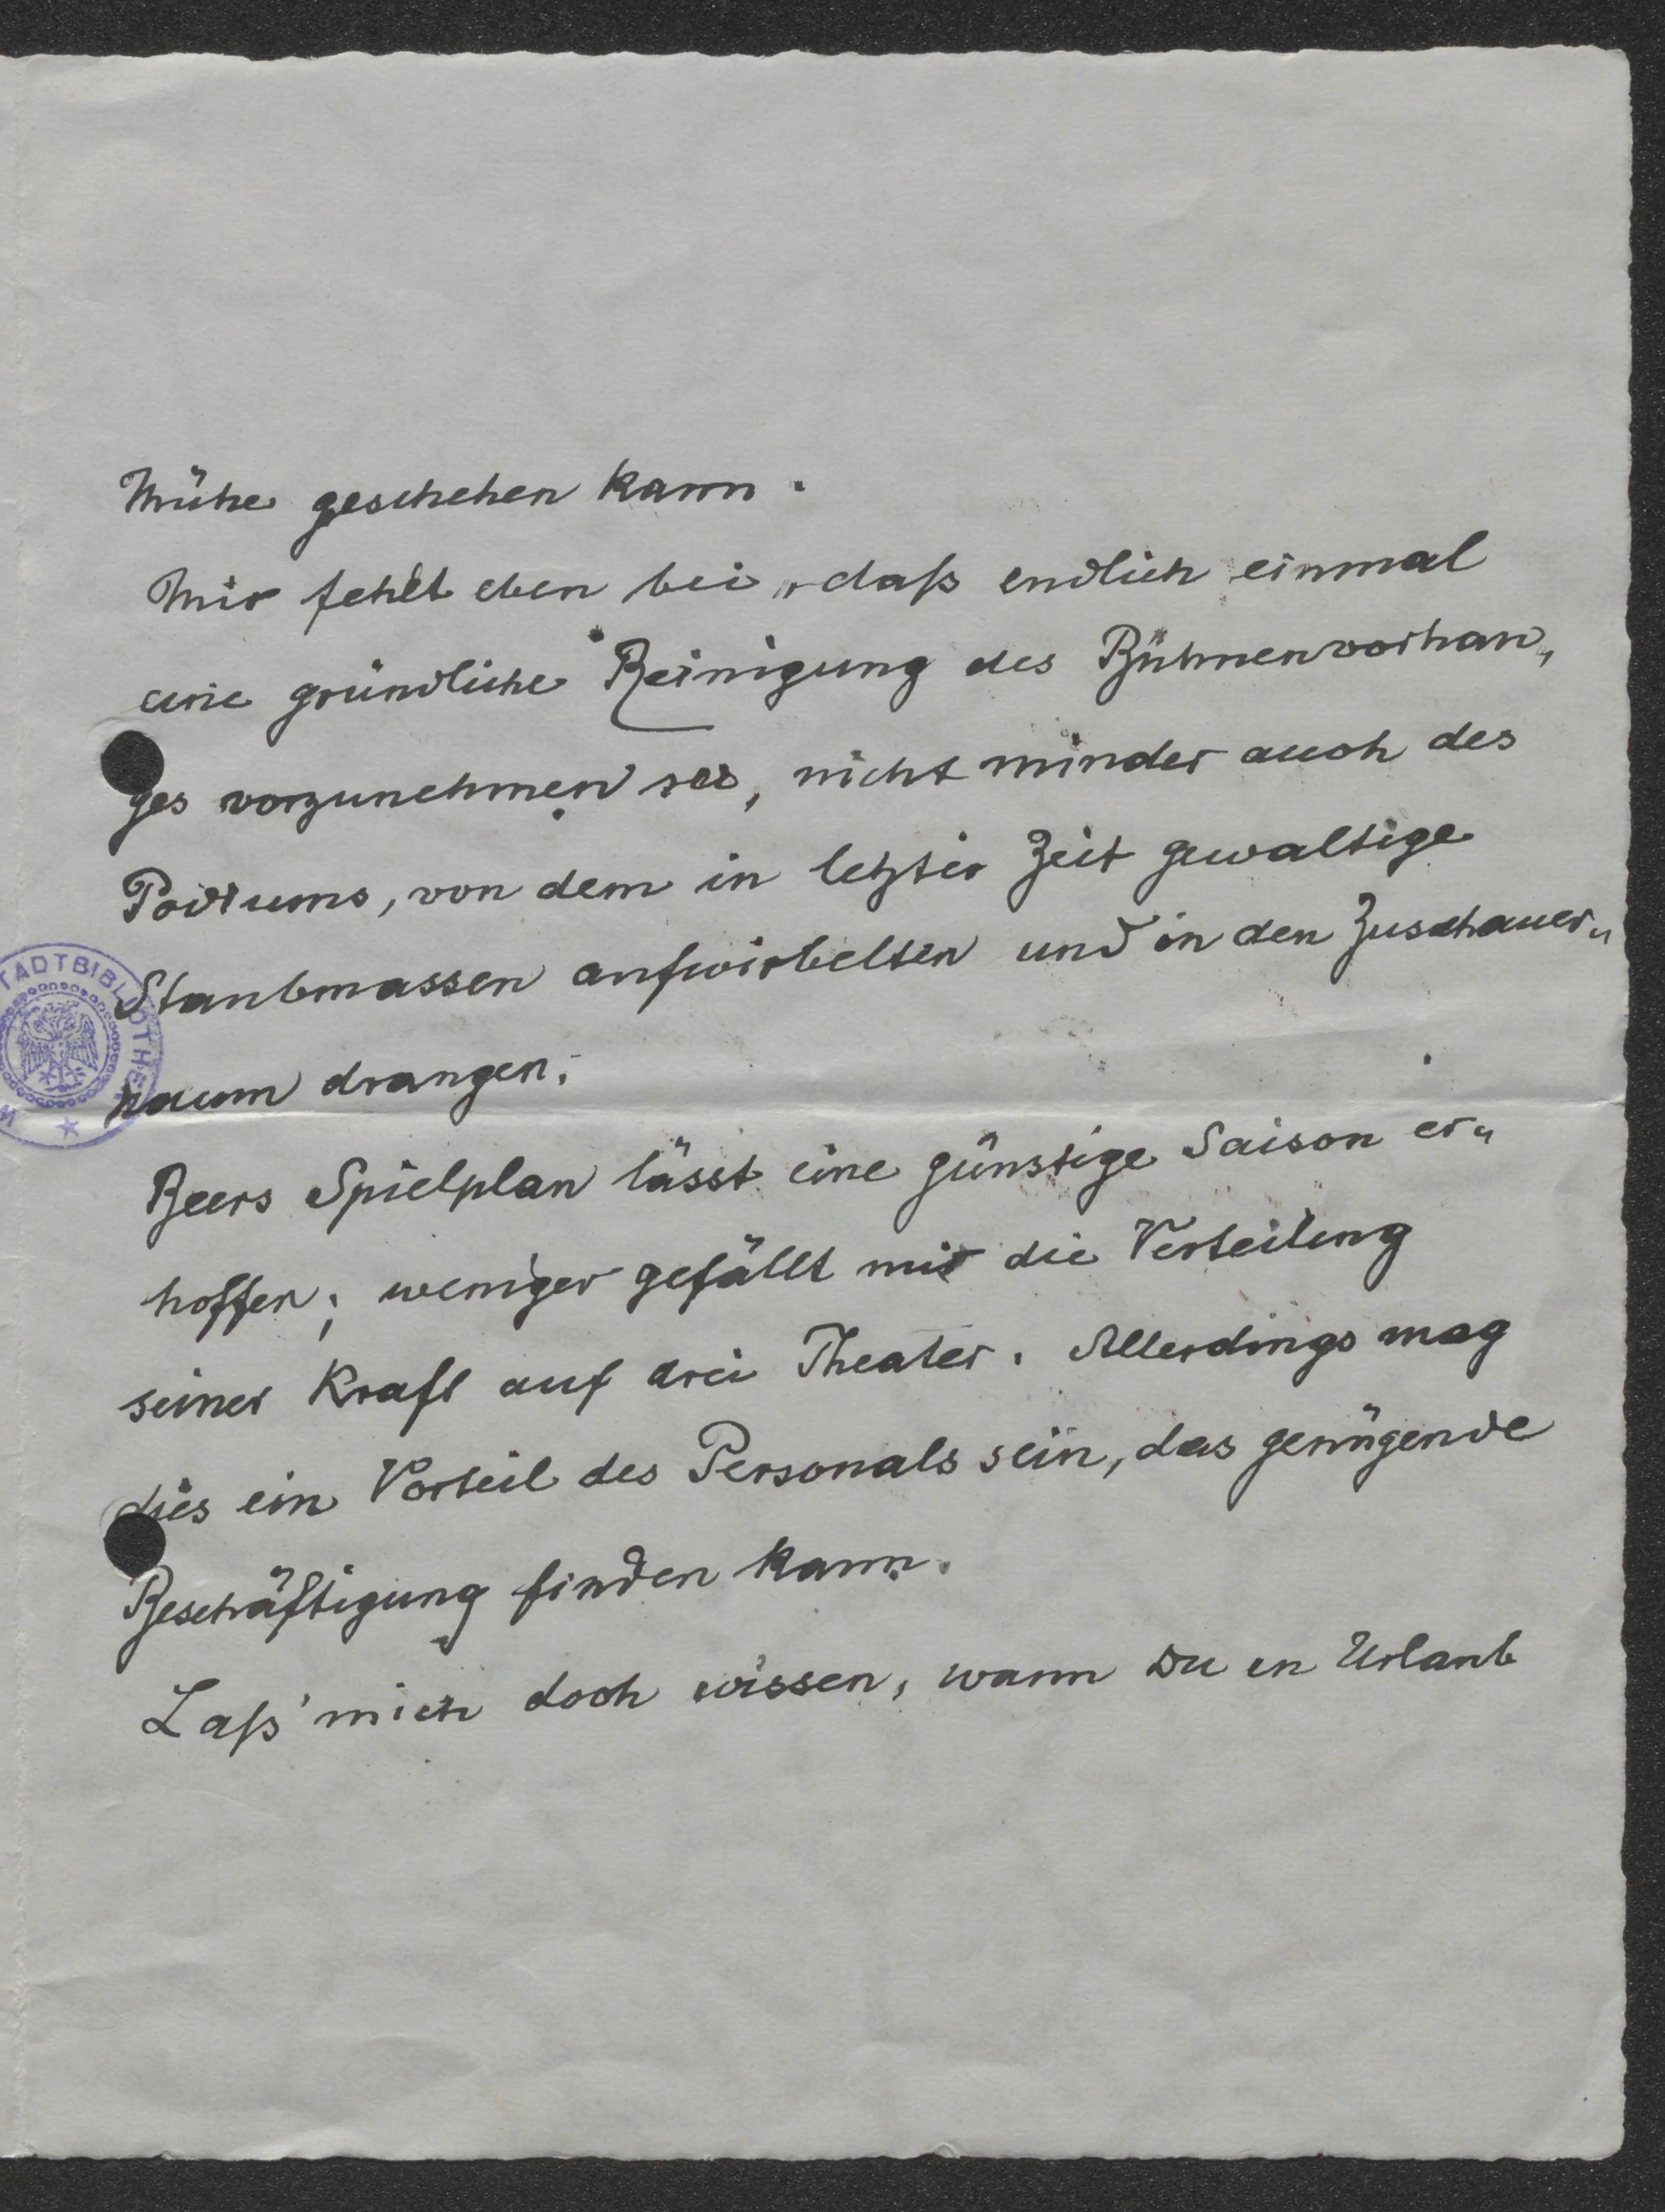 Mühe geschehen kann.
Mir fehlt eben bei, daß endlich einmal
eine gründliche Reinigung des Bühnenvorhan„
ges vorzunehmen sei, nicht minder auch des
Podiums, von dem in letzter Zeit gewaltige
Staubmassen aufwirbelten und in den Zuschauer„
raum drangen.
Beers Spielplan lässt eine günstige Saison er„
hoffen; weniger gefällt mir die Verteilung
seiner Kraft auf drei Theater. Allerdings mag
dies ein Vorteil des Personals sein, das genügende
Beschäftigung finden kann.
Laß' mich doch wissen, wann Du in Urlaub
TADTBIBLIOTHEK